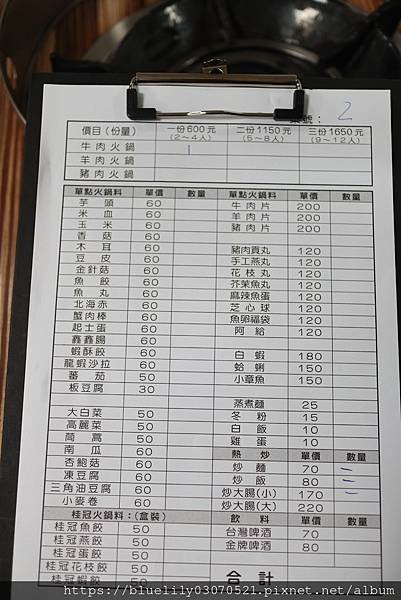 桌號： 2
價目（份量） 一份600元（2~4人） 二份1150元（5~8人） 三份1650元（9~12人）
牛肉火鍋
羊肉火鍋
豬肉火鍋
單點火鍋料 單價 數量 單點火鍋料 單價 數量
芋頭 60 牛肉片 200
米血 60 羊肉片 200
玉米 60 豬肉片 200
香菇 60
木耳 60 豬肉貢丸 120
豆皮 60 手工燕丸 120
金針菇 60 花枝丸 120
魚餃 60 芥茉魚丸 120
魚丸 60 麻辣魚蛋 120
北海赤 60 芝心球 120
蟹肉棒 60 魚卵福袋 120
起士蛋 60 阿給 120
鑫鑫腸 60
蝦酥餃 60 白蝦 180
龍蝦沙拉 60 蛤蜊 150
蕃茄 50 小章魚 150
板豆腐 30
蒸煮麵 25
大白菜 50 冬粉 15
高麗菜 50 白飯 10
茼萵 50 雞蛋 10
南瓜 60 熱炒 單價 數量
杏鮑菇 60 炒麵 70 一
凍豆腐 50 炒飯 80 一
三角油豆腐 50 炒大腸(小) 170 一
小麥卷 60 炒大腸(大) 220
桂冠火鍋料：(盒裝) 飲料 單價 數量
桂冠魚餃 50 台灣啤酒 70
桂冠燕餃 50 金牌啤酒 80
桂冠蛋餃 50
桂冠花枝餃 50 合計
桂冠蝦餃 50
https://bluelily03070521.pixnet.net/album